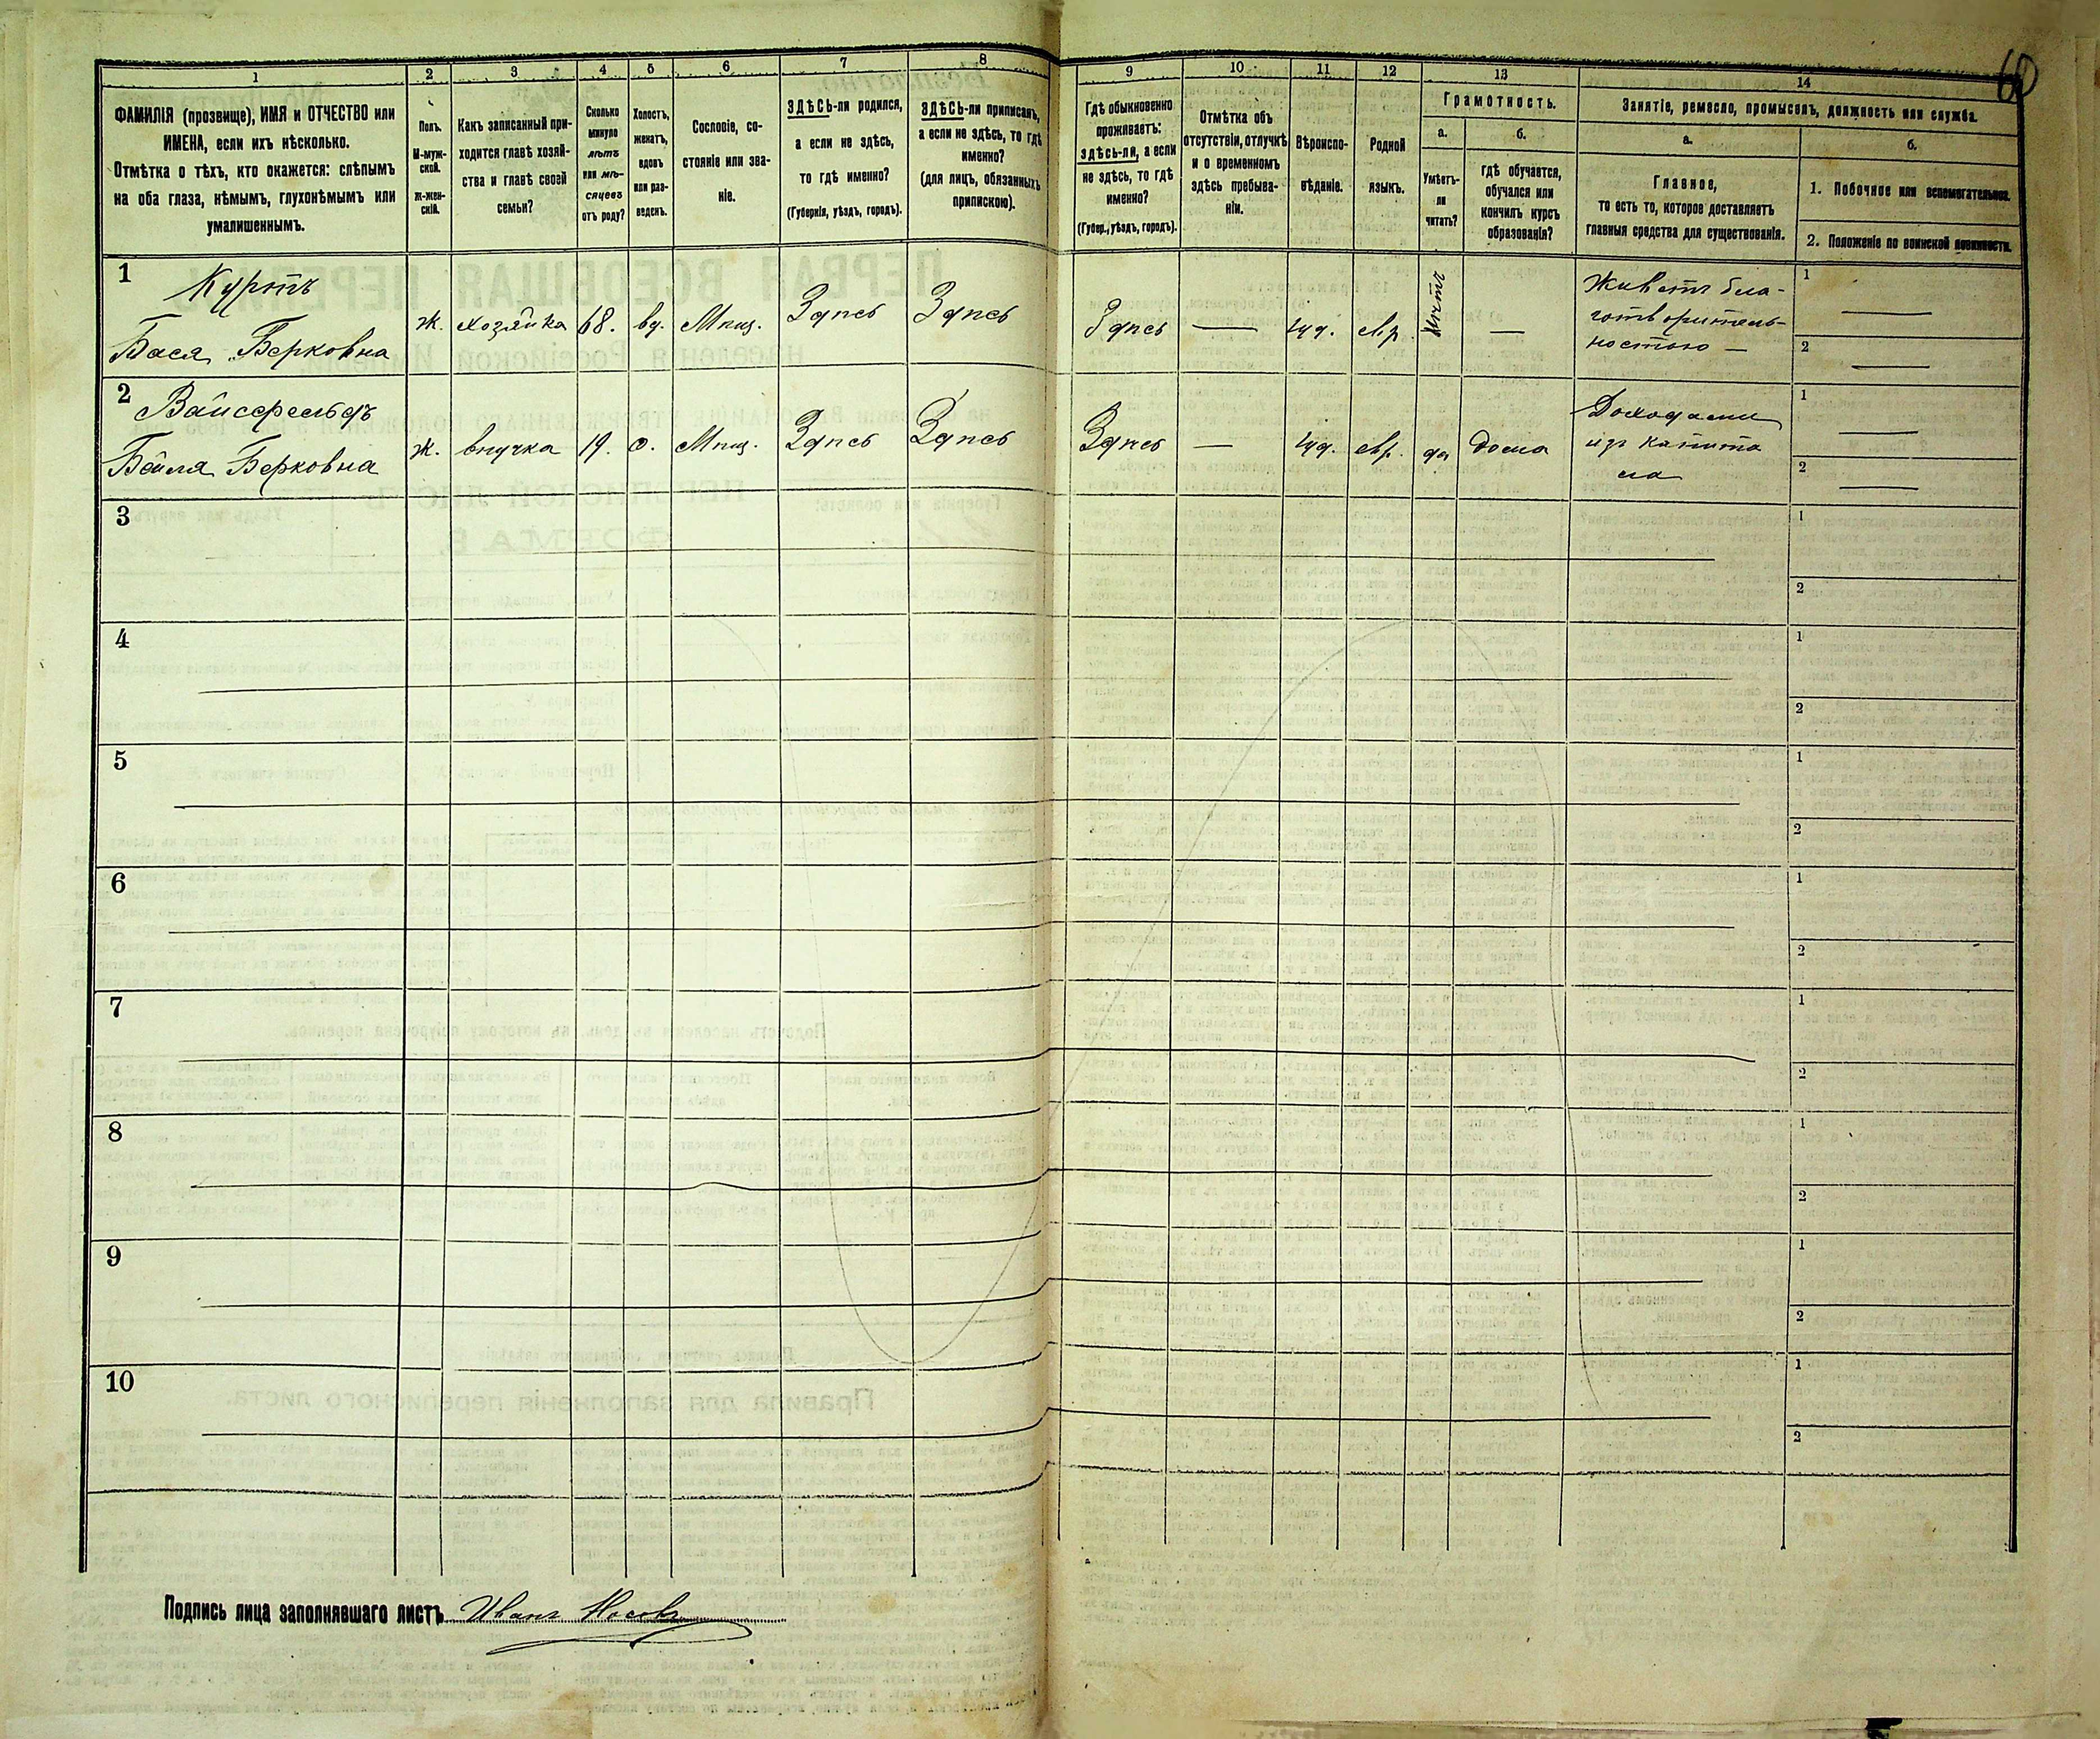 60
1 2 3 4 5 6 7 8 9 10 11 12 13 14
ФАМИЛІЯ (прозвище), ИМЯ и ОТЧЕСТВО или
ИМЕНА, если ихъ нѣсколько.
Отмѣтка о тѣхъ, кто окажется: слѣпымъ
на оба глаза, нѣмымъ, глухонѣмымъ или
умалишеннымъ.
Полъ.
М-муж-
ской.
Ж-жен-
скій.
Какъ записанный при-
ходится главѣ хозяй-
ства и главѣ своей
семьи?
Сколько
минуло
лѣтъ
или мѣ-
сяцевъ
отъ роду?
Холостъ,
женатъ,
вдовъ
или раз-
веденъ.
Сословіе, со-
стояніе или зва-
ніе.
ЗДѢСЬ-ли родился,
а если не здѣсь,
то гдѣ именно?
(Губернія, уѣздъ, городъ).
ЗДѢСЬ-ли приписанъ,
а если не здѣсь, то гдѣ
именно?
(для лицъ, обязанныхъ
припискою).
Гдѣ обыкновенно
проживаетъ:
здѣсь-ли, а если
не здѣсь, то гдѣ
именно?
(Губер., уѣздъ, городъ).
Отмѣтка объ
отсутствіи, отлучкѣ
и о временномъ
здѣсь пребыва-
ніи.
Вѣроиспо-
вѣданіе.
Родной
языкъ.
Грамотность.
а.
Умѣетъ-
ли
читать?
б.
гдѣ обучается,
обучался или
кончилъ курсъ
образованія?
Занятіе, ремесло, промыселъ, должность или служба.
а.
Главное,
то есть то, которое доставляетъ
главныя средства для существованія.
б.
1. Побочное или вспомогательное.
2. Положеніе по воинской повинности.
1
Куртъ
Бася Берковна
ж. хозяйка 68. вд. Мѣщ. Здѣсь Здѣсь Здѣсь — іуд. евр. нѣтъ —
Живетъ бла-
готворитель-
ностью —
1 —
2 —
2
Вайсфельдъ
Бейля Берковна
ж. внучка 19. д. Мѣщ. Здѣсь Здѣсь Здѣсь — іуд. евр. да дома
Доходами
изъ капита
ла
1 —
2 —
3
1
2
4
1
2
5
1
2
6
1
2
7
1
2
8
1
2
9
1
2
10
1
2
Подпись лица заполнявшаго листъ Иванъ Носовъ